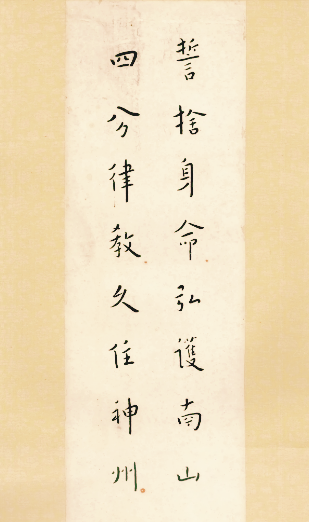 誓捨身命弘護南山
四分律教久住神州